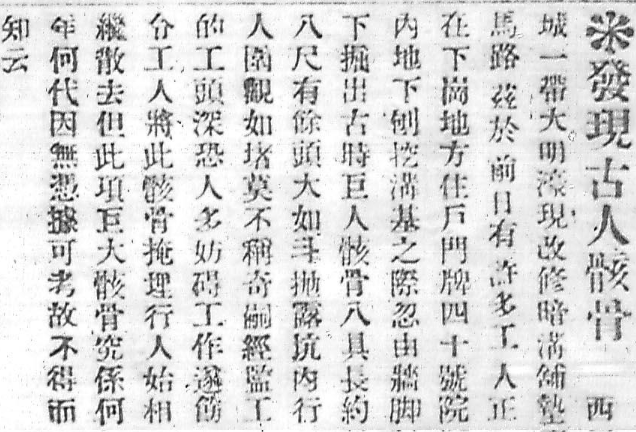 ※發現古人骸骨 西
城一帶大明濠現改修暗溝鋪墊
馬路茲於前日有許多工人正
在下崗地方住戶門牌四十號院
內地下刨挖溝基之際忽由牆脚
下掘出古時巨人骸骨八具長約
八尺有餘頭大如斗拋露坑內行
人圍觀如堵莫不稱奇嗣經監工
的工頭深恐人多妨碍工作遂飭
令工人將此骸骨掩埋行人始相
繼散去但此項巨大骸骨究係何
年何代因無憑據可考故不得而
知云